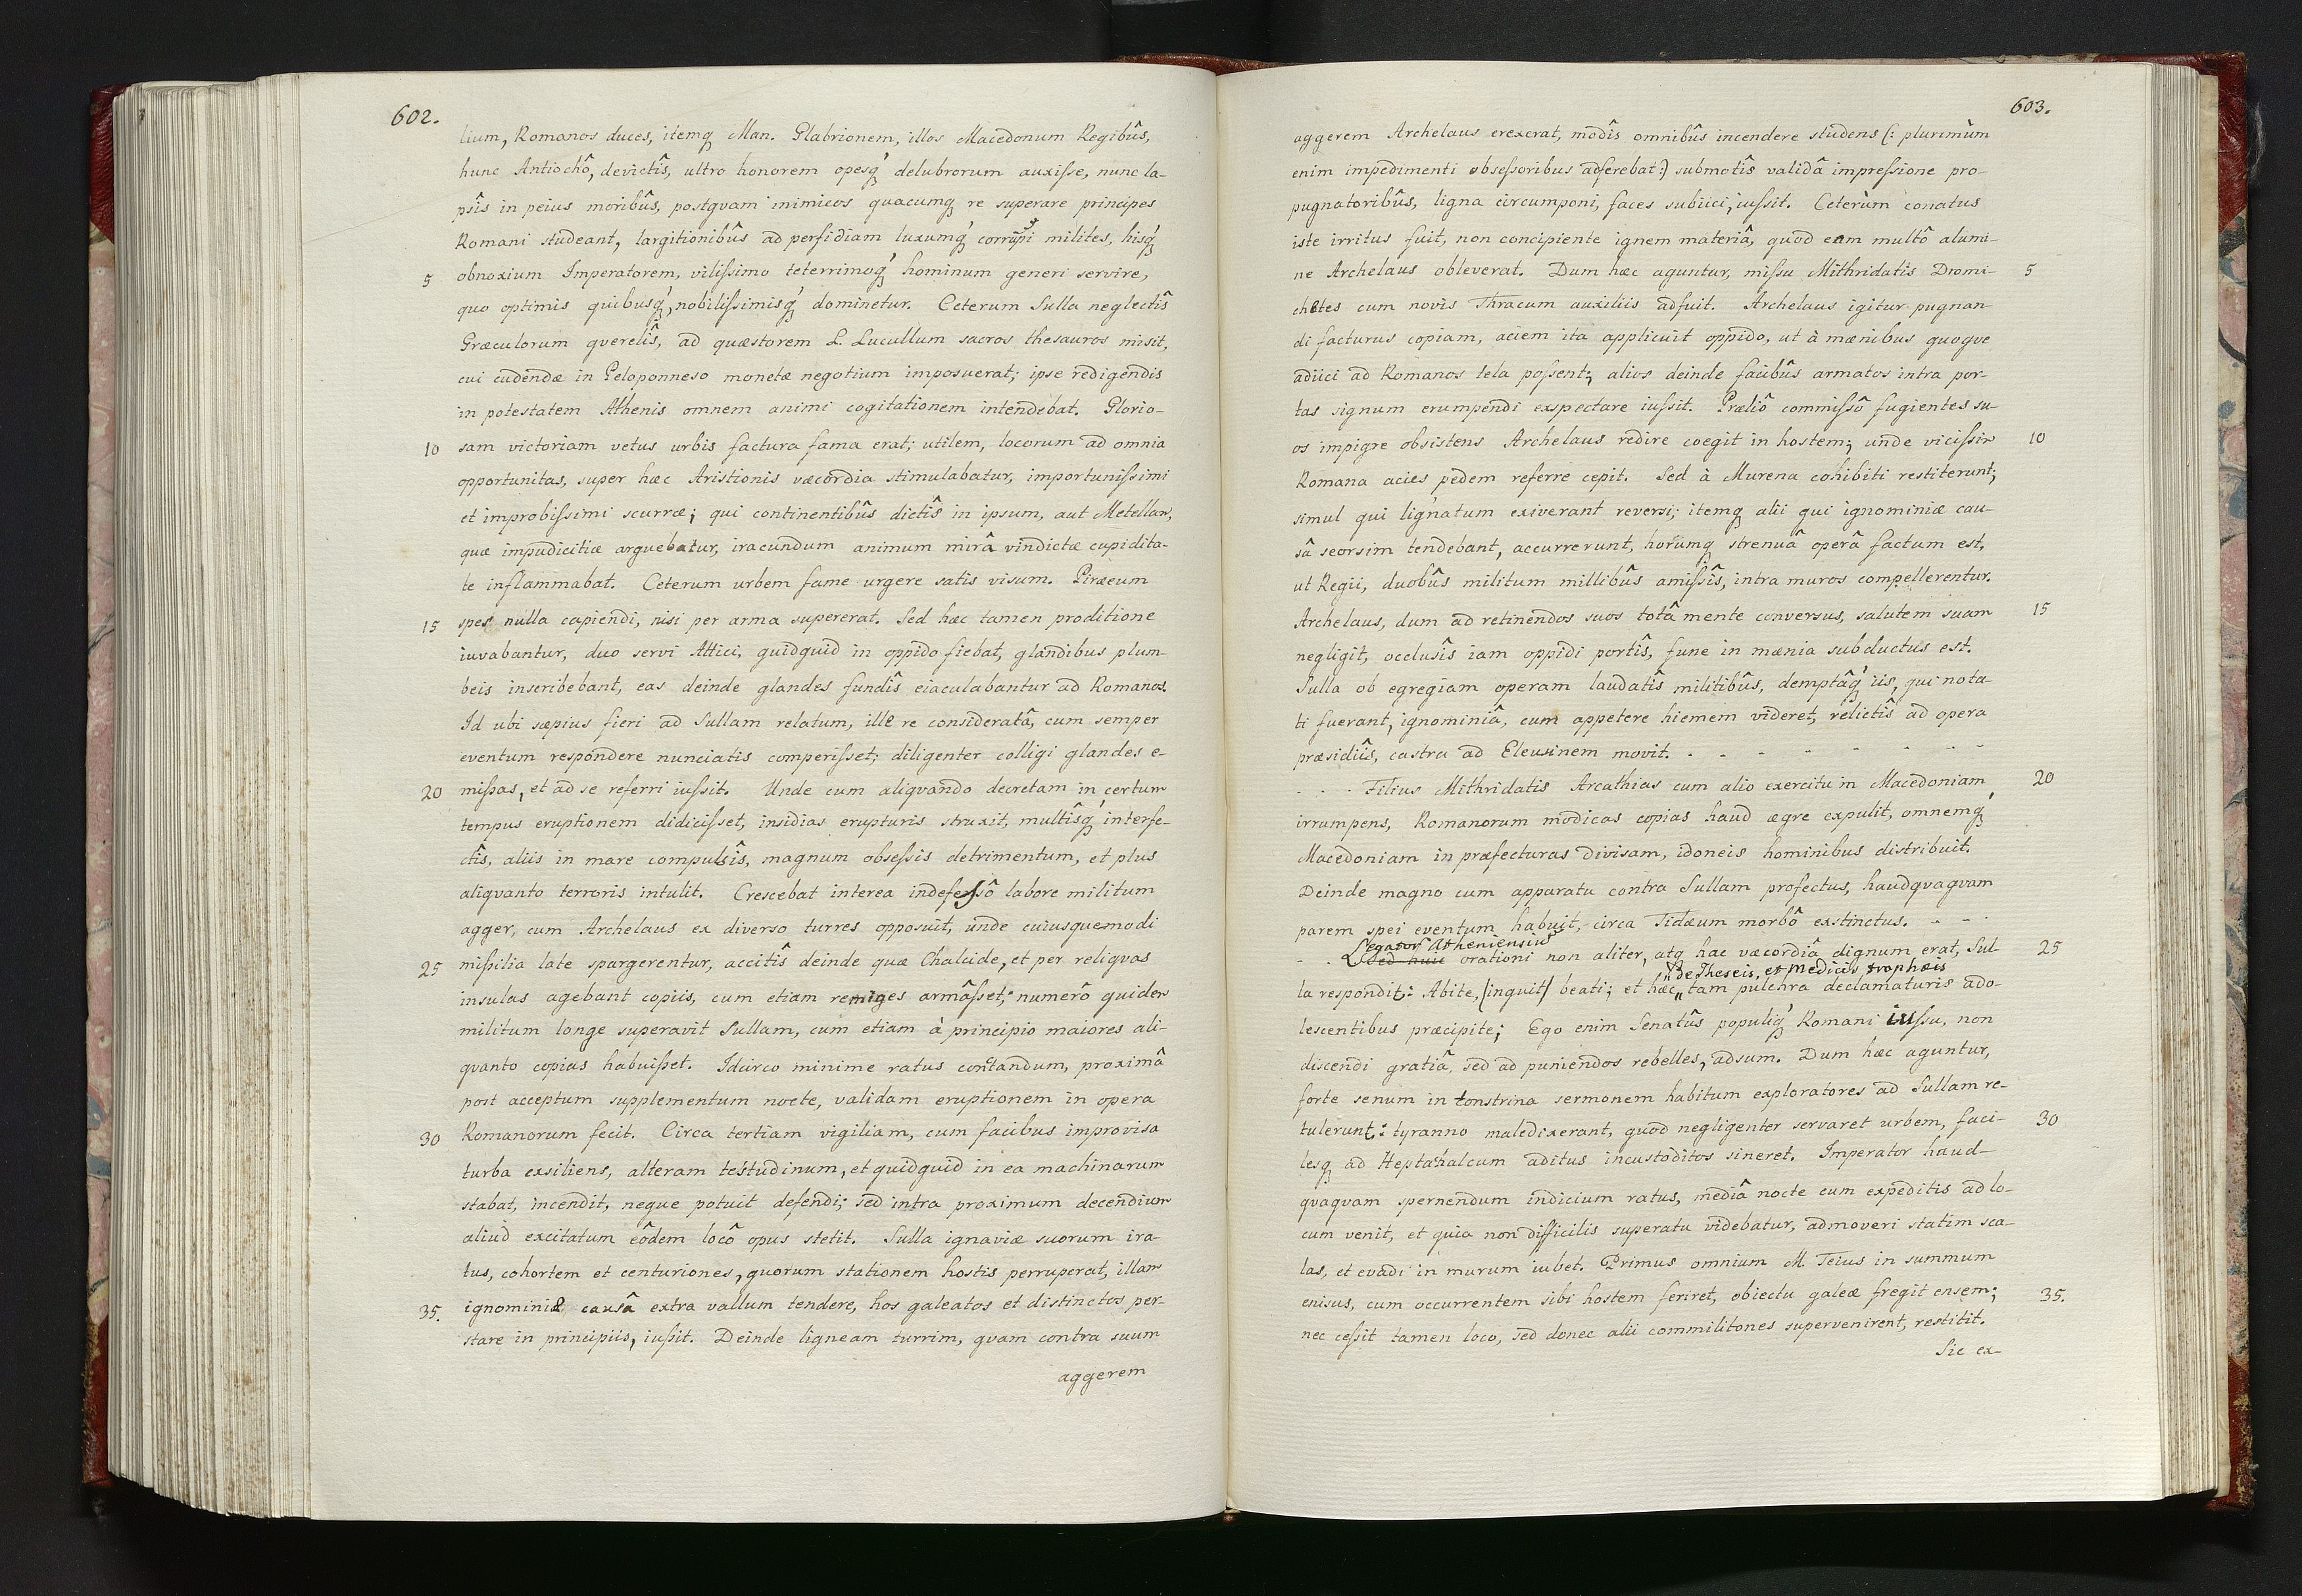 602.
lium, Romanos duces, itemq Man. Glabrionem, illos Macedonum Regibûs,
hunc Antiochô, devictîs, ultro honorem opesq́ delubrorum auxisse, nunc la-
psîs in peius moribûs, postqvam inimicos quacumq re superare principes
Romani studeant, largitionibûs ad perfidiam luxumq́ corrupi milites, hisq́
5 obnoxium Imperatorem, vilissimo teterrimoq́ hominum generi servire,
quo optimis quibusq́, nobilissimisq́ dominetur. Ceterum Sulla neglectîs
Græculorum qverelîs, ad quæstorem L. Lucullum sacros thesauros misit,
cui cudendæ in Peloponneso monetæ negotium imposuerat; ipse redigendis
in potestatem Athenis omnem animi cogitationem intendebat. Glorio-
10 sam victoriam vetus urbis factura fama erat; utilem, locorum ad omnia
opportunitas, super hæc Aristionis væcordia stimulabatur, importunissimi
et improbissimi scurræ; qui continentibûs dictîs in ipsum, aut Metellam,
quæ impudicitiæ arguebatur, iracundum animum mirâ vindictæ cupidita-
te inflammabat. Ceterum urbem fame urgere satis visum. Piræeum
15 spes nulla capiendi, nisi per arma supererat. Sed hæc tamen proditione
iuvabantur, duo servi Attici, quidquid in oppido fiebat, glandibus plum-
beis inscribebant, eas deinde glandes fundîs eiaculabantur ad Romanos.
Id ubi sæpius fieri ad Sullam relatum, ille re consideratâ, cum semper
eventum respondere nunciatis comperisset; diligenter colligi glandes e-
20 missas, et ad se referri iussit. Unde cum aliqvando decretam in certum
tempus eruptionem didicisset, insidias erupturis struxit, multîsq́ interfe-
ctîs, aliis in mare compulsîs, magnum obsessis detrimentum, et plus
aliqvanto terroris intulit. Crescebat interea indefessô labore militum
agger, cum Archelaus ex diverso turres opposuit, unde cuiusquemodi
25 missilia late spargerentur, accitîs deinde quæ Chalcide, et per reliqvas
insulas agebant copiis, cum etiam remiges armâsset; numerô quidem
militum longe superavit Sullam, cum etiam à principio maiores ali-
qvanto copias habuisset. Idcirco minime ratus contandum, proximâ
post acceptum supplementum nocte, validam eruptionem in opera
30 Romanorum fecit. Circa tertiam vigiliam, cum facibus improvisa
turba exsiliens, alteram testudinum, et quidquid in ea machinarum
stabat, incendit, neque potuit defendi; sed intra proximum decendium
aliud excitatum eôdem locô opus stetit. Sulla ignaviæ suorum ira-
tus, cohortem et centuriones, quorum stationem hostis perruperat, illam
35. ignominiæ causâ extra vallum tendere, hos galeatos et distinctos per-
stare in principiis, iussit. Deinde ligneam turrim, qvam contra suum
aggerem
603.
aggerem Archelaus erexerat, modîs omnibûs incendere studens (: plurimùm
enim impedimenti obsessoribus adferebat :) submotîs validâ impressione pro-
pugnatoribûs, ligna circumponi, faces subiici, iussit. Ceterùm conatus
iste irritus fuit, non concipiente ignem materiâ, quod eam multô alumi-
ne Archelaus obleverat. Dum hæc aguntur, missu Mithridatis Dromi- 5
chetes cum novis Thracum auxiliis adfuit. Archelaus igitur pugnan-
di facturus copiam, aciem ita applicuit oppido, ut à mænibus quoqve
adiici ad Romanos tela possent; alios deinde facibûs armatos intra por-
tas signum erumpendi exspectare iussit. Prœliô commissô fugientes su-
os impigre obsistens Archelaus redire coegit in hostem; unde vicissim 10
Romana acies pedem referre cepit. Sed à Murena cohibiti restiterunt;
simul qui lignatum exiverant reversi; itemq alii qui ignominiæ cau-
sâ seorsim tendebant, accurrerunt, horumq strenuâ operâ factum est,
ut Regii, duobûs militum millibûs amissîs, intra muros compellerentur.
Archelaus, dum ad retinendos suos totâ mente conversus, salutem suam 15
negligit, occlusîs iam oppidi portîs, fune in mænia subductus est.
Sulla ob egregiam operam laudatîs militibûs, demptâq́ iis, qui nota-
ti fuerant, ignominiâ, cum appetere hiemem videret, relictîs ad opera
præsidiîs, castra ad Eleusinem movit. - - - - - - - -
- - - Filius Mithridatis Arcathias cum alio exercitu in Macedoniam 20
irrumpens, Romanorum modicas copias haud ægre expulit, omnemq́
Macedoniam in præfecturas divisam, idoneis hominibus distribuit.
Deinde magno cum apparatu contra Sullam profectus, haudqvaqvam
parem spei eventum habuit, circa Tidæum morbô exstinctus. - - -
Legator Atheniensiū
- - Sed huic orationi non aliter, atq hac væcordiâ dignum erat, Sul- 25
de Theseis, et Medicis trophæis
la respondit: Abite, [inquit] beati; et hæc tam pulchra declamaturis ado-
lescentibus præcipite; Ego enim Senatûs populiq́ Romani iussu, non
discendi gratiâ, sed ad puniendos rebelles, adsum. Dum hæc aguntur,
forte senum in tonstrina sermonem habitum exploratores ad Sullam re-
tulerunt: tyranno maledixerant, quod negligenter servaret urbem, faci- 30
lesq ad Heptahalcum aditus incustoditos sineret. Imperator haud-
qvaqvam spernendum indicium ratus, mediâ nocte cum expeditis ad lo-
cum venit, et quia non difficilis superatu videbatur, admoveri statim sca-
las, et evadi in murum iubet. Primus omnium M. Teius in summum
enisus, cum occurrentem sibi hostem feriret, obiectu galeæ fregit ensem; 35.
nec cessit tamen loco, sed donec alii commilitones supervenirent, restitit.
Sic ex-